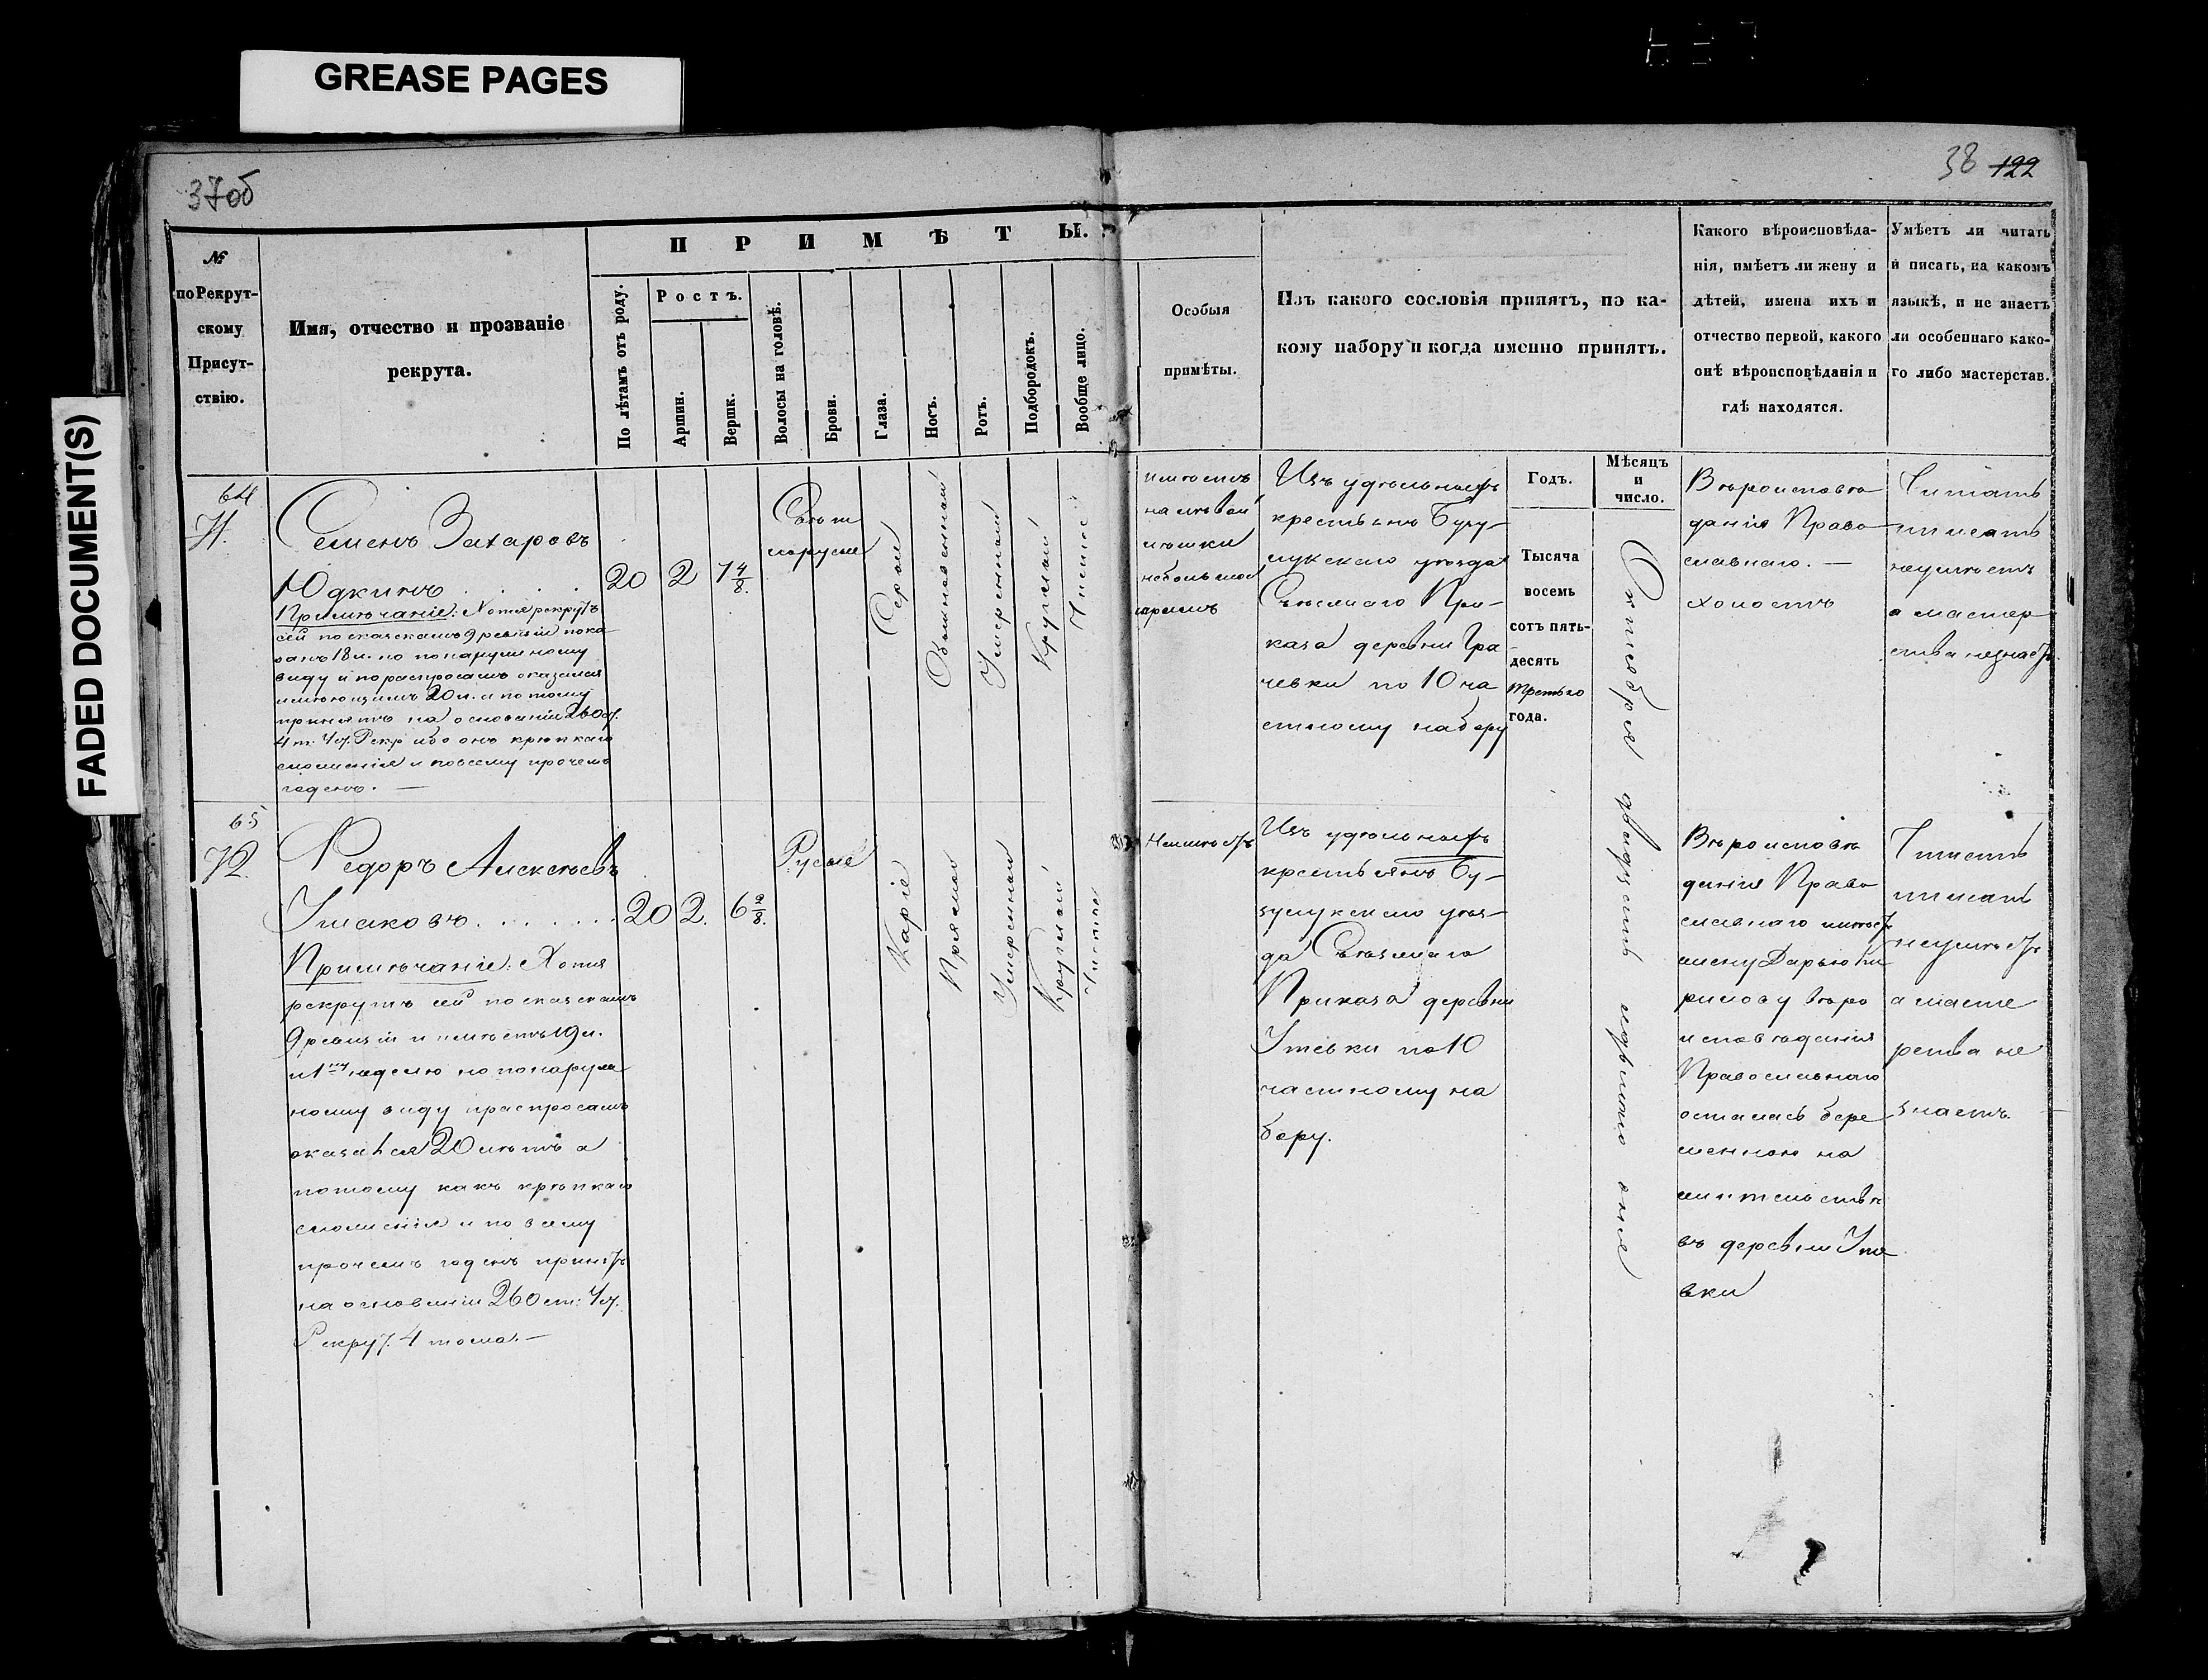 GREASE PAGES
FADED DOCUMENT(S)
37об
38 122
№
по Рекрут-
скому
Присут-
ствію.
Имя, отчество и прозваніе
рекрута.
ПРИМѢТЫ.
По лѣтамъ отъ роду.
Ростъ.
Аршин.
Вершк.
Волосы на головѣ.
Брови.
Глаза.
Носъ.
Ротъ.
Подбородокъ.
Вообще лицо.
Особыя
примѣты.
Изъ какого сословія принятъ, по ка-
кому набору и когда именно принятъ.
Какого вѣроисповѣда-
нія, имѣетъ ли жену и
дѣтей, имена ихъ и
отчество первой, какого
онѣ вѣроисповѣданія и
гдѣ находятся.
Умѣетъ ли читать
и писать, на какомъ
языкѣ, и не знаетъ
ли особеннаго како-
го либо мастерства.
Годъ.
Мѣсяцъ
и
число.
64
71.
Семенъ Захаровъ
Юдкинъ
Примѣчаніе: Хотя рекрутъ
сей по сказкамъ 9 ревизіи пока
занъ 18 л. но по наружному
виду и по распросамъ оказался
имѣющимъ 20 л. и по тому
принятъ на основаніи 260 ст.
4 т. Уст. Рекр ибо онъ крѣпкаго
сложенія и по всему прочему
годенъ. —
20
2
7 4/8.
Свѣт
лорусые
Серые
Обыкновенный
Умеренный
Круглый
Чистое
имѣетъ
на лѣвой
ляшки
небольшой
шрамъ
Изъ удѣльныхъ
крестьянъ Бузу-
лукскаго уѣзда
Съѣзжаго При-
каза деревни Гра
чевки по 10 ча
стному набору
Тысяча
восемь
сотъ пять-
десять
третьяго
года.
Октября двадцать перваго дня
Вѣроисповѣ
данія Право
славнаго. —
холостъ
Читать
писать
неумѣетъ
а мастер
ства незнаетъ.
65
72.
Федоръ Алексѣевъ
Ушаковъ
Примѣчаніе: Хотя
рекрутъ сей по сказкамъ
9 ревизіи и имѣетъ 19 л.
и 1ну неделю но по наруж
ному виду и распросамъ
оказался 20 лѣтъ а
потому какъ крѣпкаго
сложенія и по всему
прочему годенъ принятъ
на основаніи 260 ст: Уст.
Рекрут. 4 тома. —
20
2.
6 2/8.
Русые
Каріе
Прямой
Умеренный
Круглый
Чистое
Неимѣетъ
Изъ удѣльныхъ
крестьянъ Бу-
зулукскаго уѣз-
да Съѣзжаго
Приказа деревни
Утевки по 10
частному на
бору.
Вѣроисповѣ
данія Право
славнаго имѣетъ
жену Дарью Ки
рилову вѣро
исповѣданія
Православнаго
осталась бере
менною на
жительствѣ
въ деревни Уте
вки
Читать
писать
неумѣетъ
а масте
рства не
знаетъ.